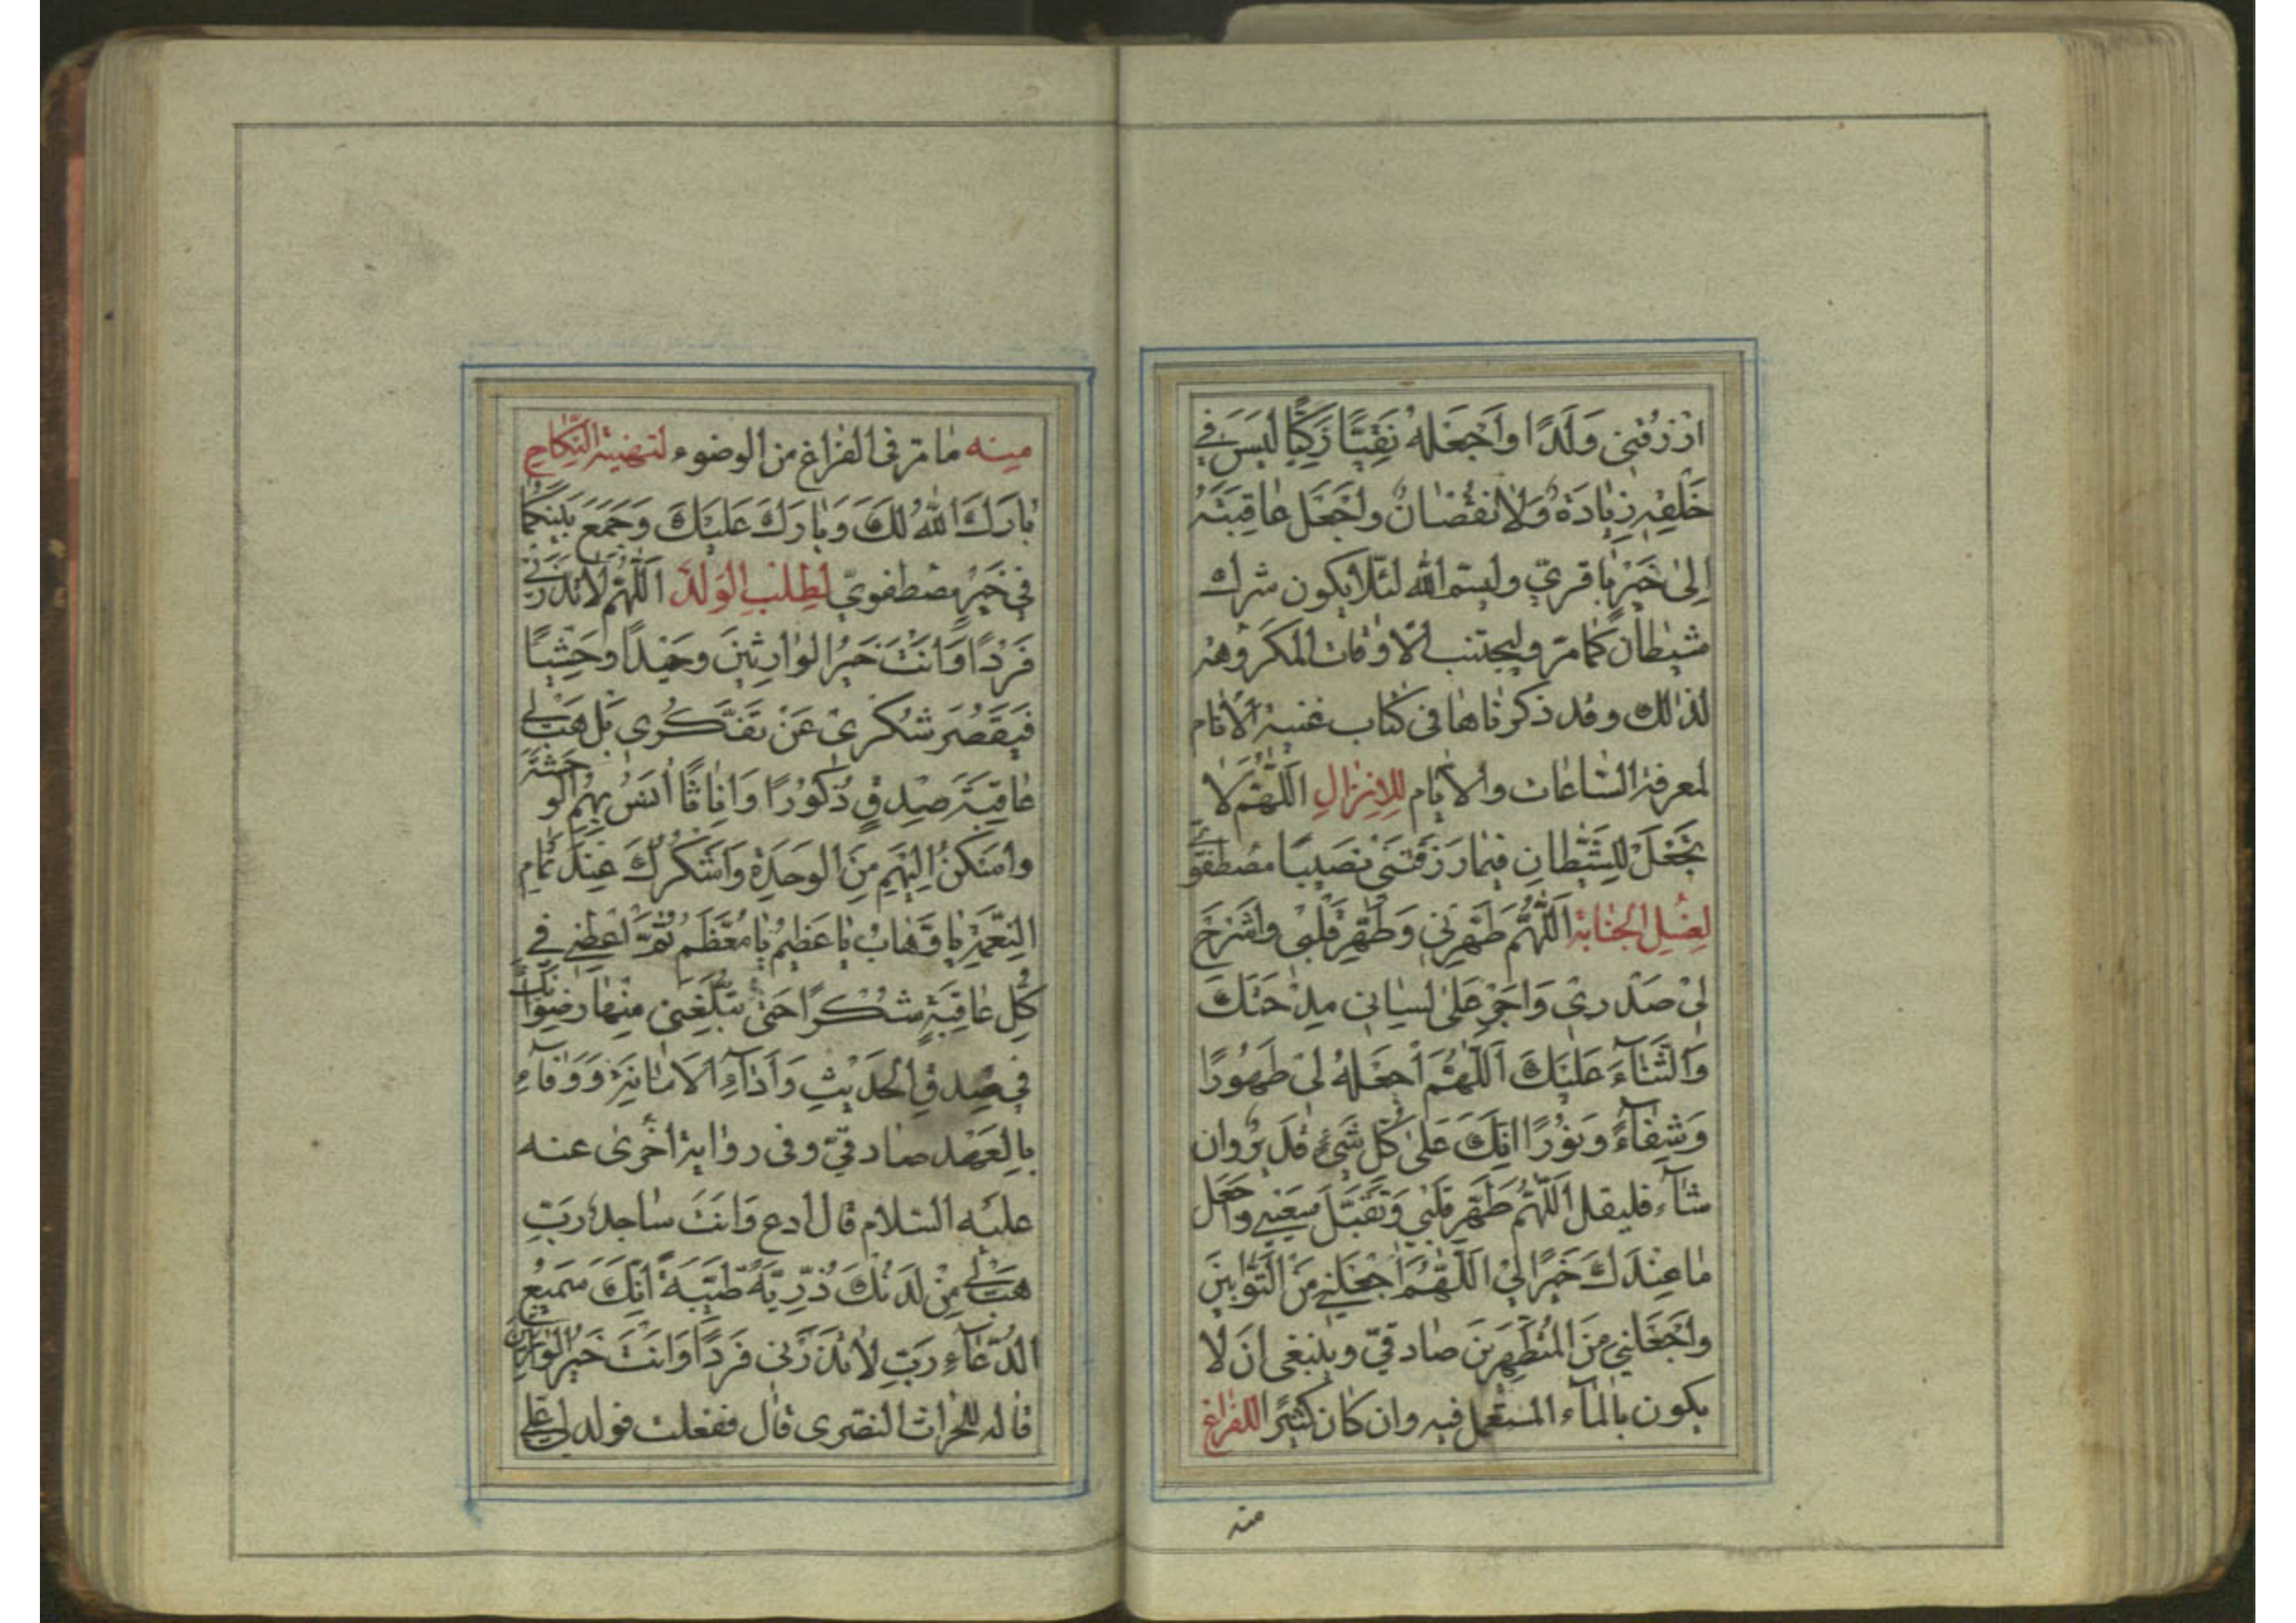 ارْزُقْنِي وَلَدًا وَاجْعَلْهُ نَقِيًّا زَكِيًّا لَيْسَ فِي
خَلْقِهِ زِيَادَةٌ وَلَا نُقْصَانٌ وَاجْعَلْ عَاقِبَتَهُ
إِلَىٰ خَيْرٍ باقريّ وليسمّ الله لئلا يكون شرك
شيطان كما مرّ وليجتنب الاوقات المكروهة
لذلك وقد ذكرناها في كتاب غنية الانام
لمعرفة الساعات والايام لِلْاِنْزَالِ اَللّٰهُمَّ لَا
تَجْعَلْ لِلشَّيْطَانِ فِيمَا رَزَقْتَنِي نَصِيبًا مصطفويّ
لِغُسْلِ الْجَنَابَةِ اَللّٰهُمَّ طَهِّرْنِي وَطَهِّرْ قَلْبِي وَاشْرَحْ
لِي صَدْرِي وَاَجْرِ عَلَىٰ لِسَانِي مِدْحَتَكَ
وَالثَّنَاءَ عَلَيْكَ اَللّٰهُمَّ اجْعَلْهُ لِي طَهُورًا
وَشِفَاءً وَنُورًا اِنَّكَ عَلَىٰ كُلِّ شَيْءٍ قَدِيرٌ وان
شآء فليقل اَللّٰهُمَّ طَهِّرْ قَلْبِي وَتَقَبَّلْ سَعْيِي وَاجْعَلْ
مَا عِنْدَكَ خَيْرًا لِي اَللّٰهُمَّ اجْعَلْنِي مِنَ التَّوَّابِينَ
وَاجْعَلْنِي مِنَ الْمُتَطَهِّرِينَ صادقيّ وينبغي ان لا
يكون بالمآء المستعمل فيه وان كان كثيرًا للفراغ
منه
منه ما مرّ في الفراغ من الوضوء لتهنية النكاح
بَارَكَ اللهُ لَكَ وَبَارَكَ عَلَيْكَ وَجَمَعَ بَيْنَكُمَا
فِي خَيْرٍ مصطفويّ لطلب الولد اَللّٰهُمَّ لَا تَذَرْنِي
فَرْدًا وَاَنْتَ خَيْرُ الْوَارِثِينَ وَحِيدًا وَحْشِيًّا
فَيَقْصُرَ شُكْرِي عَنْ تَفَكُّرِي بَلْ هَبْ لِي
عَاقِبَةَ صِدْقٍ ذُكُورًا وَاِنَاثًا اٰنَسُ بِهِمْ الْوَحْشَةَ
وَاَسْكُنُ اِلَيْهِمْ مِنَ الْوَحْدَةِ وَاَشْكُرُكَ عِنْدَ تَمَامِ
النِّعْمَةِ يَا وَهَّابُ يَا عَظِيمُ يَا مُعَظَّمُ ثُمَّ اَعْطِنِي فِي
كُلِّ عَاقِبَةٍ شُكْرًا حَتّٰى تُبَلِّغَنِي مِنْهَا رِضْوَانَكَ
فِي صِدْقِ الْحَدِيثِ وَاَدَاءِ الْاَمَانَةِ وَوَفَاءٍ
بِالْعَهْدِ صادقيّ وفي رواية اخرى عنه
عليه السلام قال ادع وانت ساجد رَبِّ
هَبْ لِي مِنْ لَدُنْكَ ذُرِّيَّةً طَيِّبَةً اِنَّكَ سَمِيعُ
الدُّعَاءِ رَبِّ لَا تَذَرْنِي فَرْدًا وَاَنْتَ خَيْرُ الْوَارِثِينَ
قاله للحراث النصرى قال ففعلت فولد لي علي